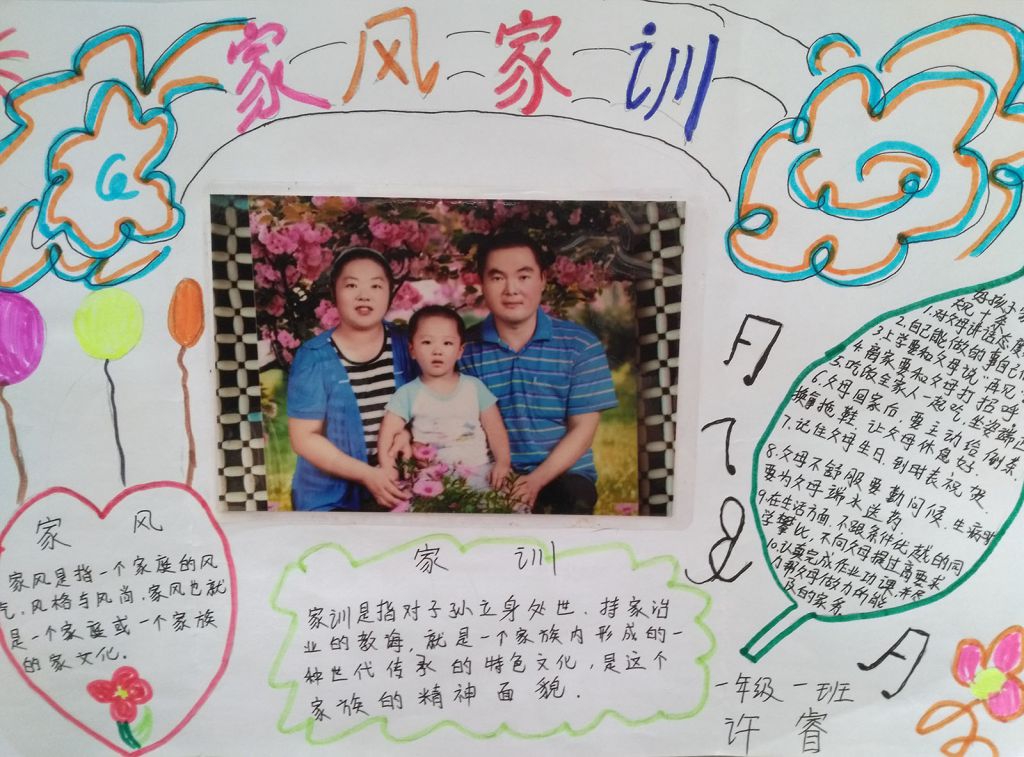 家风家训
家 风
家风是指一个家庭的风
气，风格与风尚，家风也就
是一个家庭或一个家族
的家文化．
家 训
家训是指对子孙立身处世．持家治
业的教诲，就是一个家族内形成的一
种世代传承的特色文化，是这个
家族的精神面貌．
好孩子家
规十条
1.对父母讲话态度
2.自己能做的事自己
3.上学要和父母说"再见"
4.离家要和父母打招呼
5.吃饭全家人一起吃，坐姿端
6.父母回家后，要主动给倒茶．
换拿拖鞋，让父母休息好．
7.记住父母生日，到时表祝贺
8.父母不舒服要勤问候．生病时
要为父母端水送药
9.在生活方面，不跟条件优越的同
学攀比，不向父母提过高要求
10.认真完成作业功课，并尽
力帮父母做力所能
及的家务
一年级一班
许睿